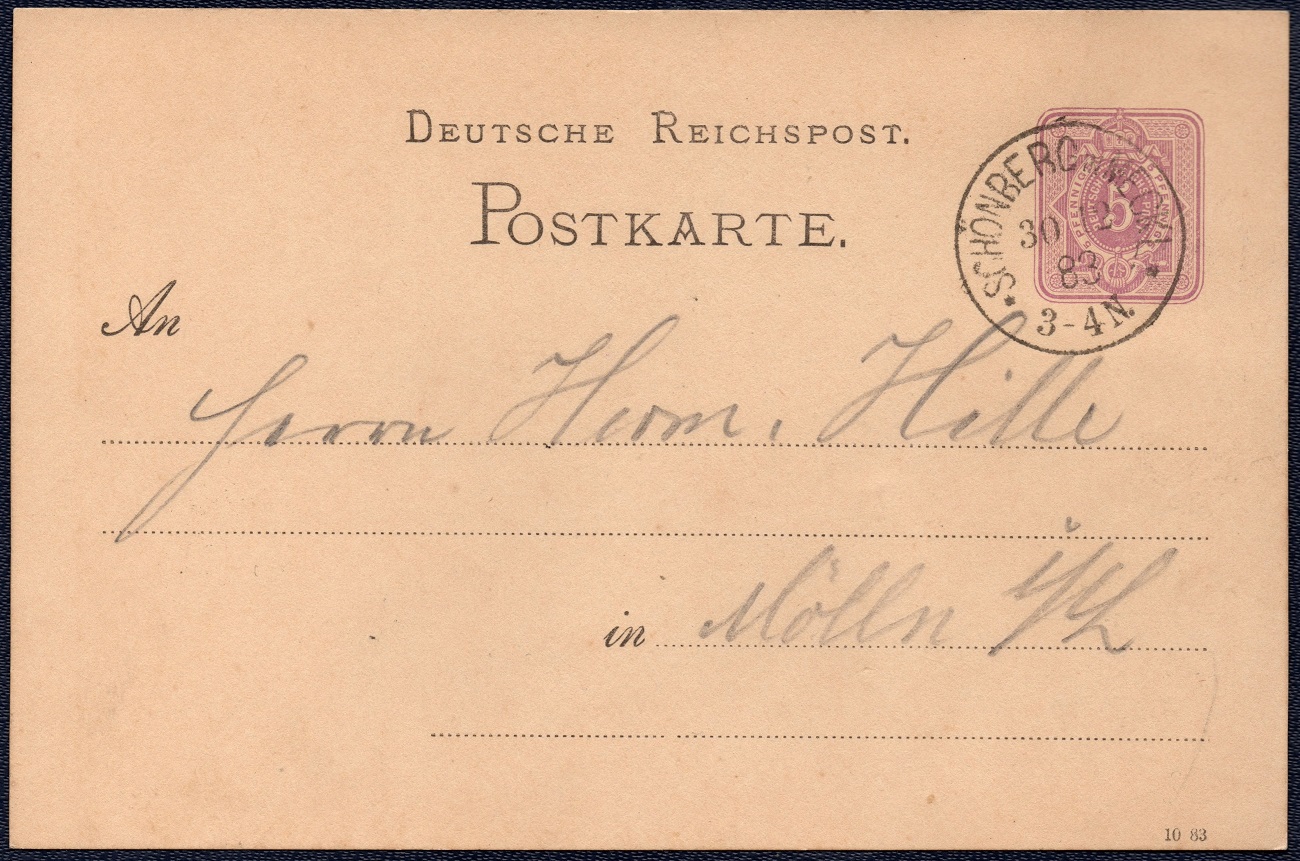 DEUTSCHE REICHSPOST.
POSTKARTE.
5 PFENNIG
5
SCHÖNBERG
30 12
83
3-4 N.
An
Herrn Herm. Hille
in Mölln i/L
10 83